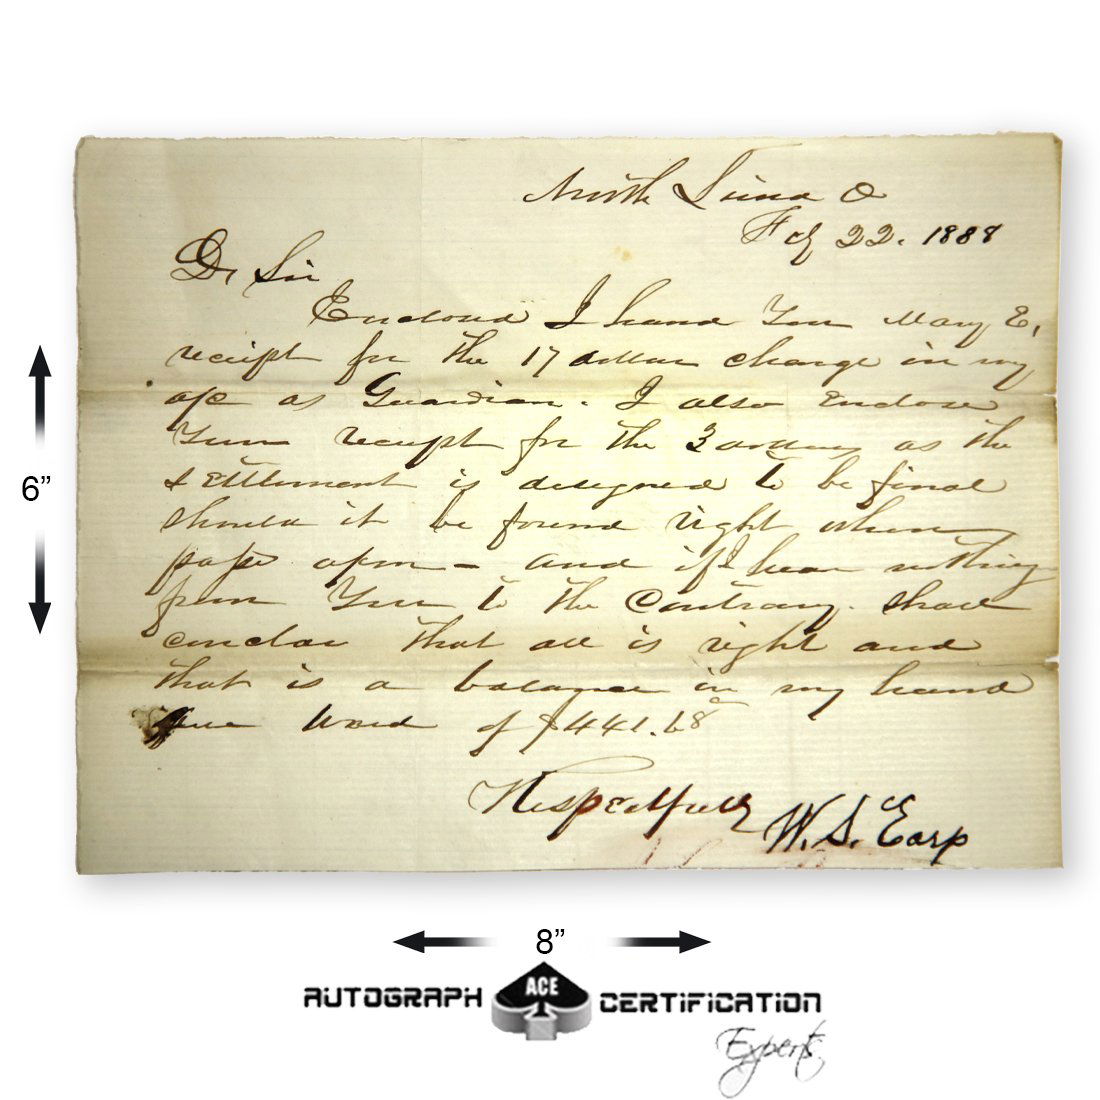 North Lima O
Feby 22. 1888
Dr Sir
Enclosed I hand You Mary E,
receipt for the 17 dollar change in my
a/c as Guardian. I also enclose
Your receipt for the 3 as the
settlement is designed to be final
should it be found right when
pass upon - and if I hear nothing
from You to the Contrary. shall
conclude that all is right and
that is a balance in my hand
Ward of $441.68
Respectfully W. S. Earp
6”
8”
AUTOGRAPH ACE CERTIFICATION
Experts